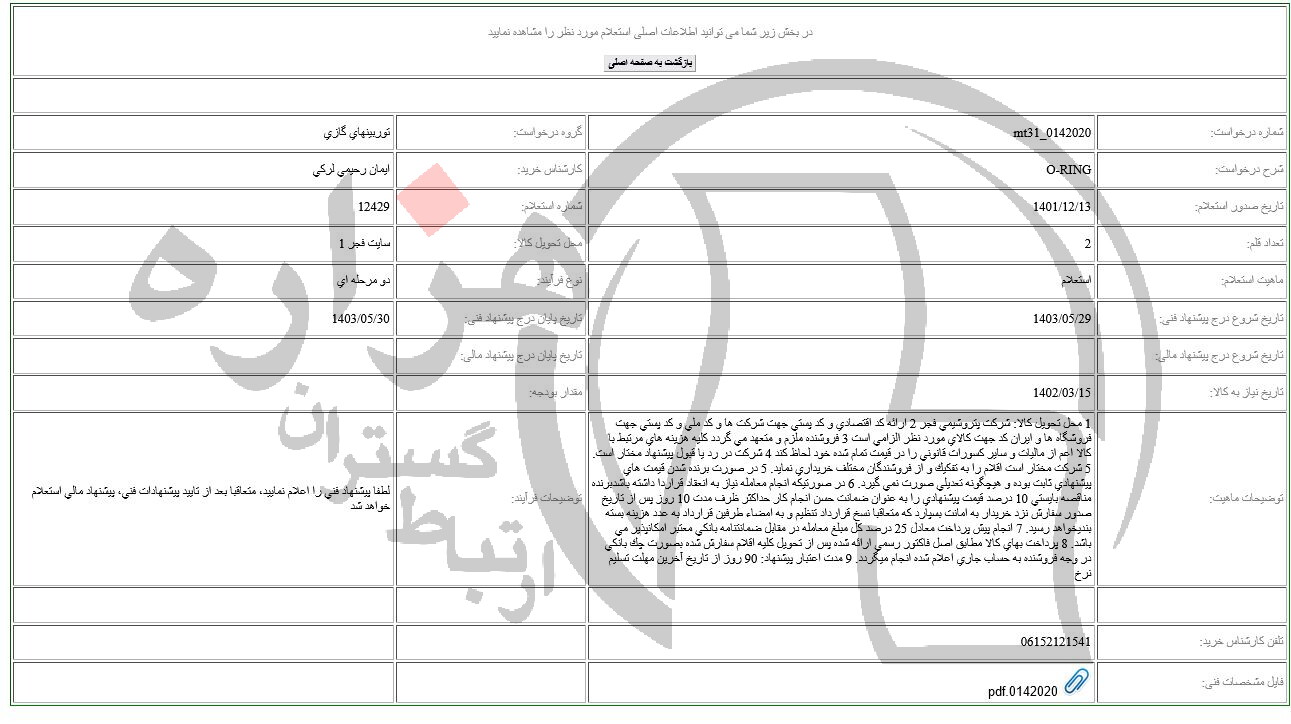 در بخش زیر شما می توانید اطلاعات اصلی استعلام مورد نظر را مشاهده نمایید
بازگشت به صفحه اصلی
شماره درخواست: mt31_0142020 گروه درخواست: توربينهاي گازي
شرح درخواست: O-RING کارشناس خرید: ايمان رحيمي لركي
تاریخ صدور استعلام: 1401/12/13 شماره استعلام: 12429
تعداد قلم: 2 محل تحویل کالا: سايت فجر 1
ماهیت استعلام: استعلام نوع فرآیند: دو مرحله اي
تاریخ شروع درج پیشنهاد فنی: 1403/05/29 تاریخ پایان درج پیشنهاد فنی: 1403/05/30
تاریخ شروع درج پیشنهاد مالی: تاریخ پایان درج پیشنهاد مالی:
تاریخ نیاز به کالا: 1402/03/15 مقدار بودجه:
توضیحات ماهیت:
1 محل تحويل كالا: شركت پتروشيمي فجر 2 ارائه كد اقتصادي و كد پستي جهت شركت ها و كد ملي و كد پستي جهت
فروشگاه ها و ايران كد جهت كالاي مورد نظر الزامي است 3 فروشنده ملزم و متعهد مي گردد كليه هزينه هاي مرتبط با
كالا اعم از ماليات و ساير كسورات قانوني را در قيمت تمام شده خود لحاظ كند 4 شركت در رد يا قبول پيشنهاد مختار است.
5 شركت مختار است اقلام را به تفكيك و از فروشندگان مختلف خريداري نمايد. 5 در صورت برنده شدن قيمت هاي
پيشنهادي ثابت بوده و هيچگونه تعديلي صورت نمي گيرد. 6 در صورتيكه انجام معامله نياز به انعقاد قراردا داشته باشدبرنده
مناقصه بايستي 10 درصد قيمت پيشنهادي را به عنوان ضمانت حسن انجام كار حداكثر ظرف مدت 10 روز پس از تاريخ
صدور سفارش نزد خريدار به امانت بسپارد كه متعاقبا نسخ قرارداد تنظيم و به امضاء طرفين قرارداد به عدد هزينه بسته
بنديخواهد رسيد. 7 انجام پيش پرداخت معادل 25 درصد كل مبلغ معامله در مقابل ضمانتنامه بانكي معتبر امكانپذير مي
باشد. 8 پرداخت بهاي كالا مطابق اصل فاكتور رسمي ارائه شده پس از تحويل كليه اقلام سفارش شده بصورت چك بانكي
در وجه فروشنده به حساب جاري اعلام شده انجام ميگردد. 9 مدت اعتبار پيشنهاد: 90 روز از تاريخ آخرين مهلت تسليم
نرخ
توضیحات فرآیند:
لطفا پيشنهاد فني را اعلام نماييد، متعاقبا بعد از تاييد پيشنهادات فني، پيشنهاد مالي استعلام
خواهد شد
تلفن کارشناس خرید: 06152121541
فایل مشخصات فنی: pdf.0142020
هزاره
گستران
ارتباط